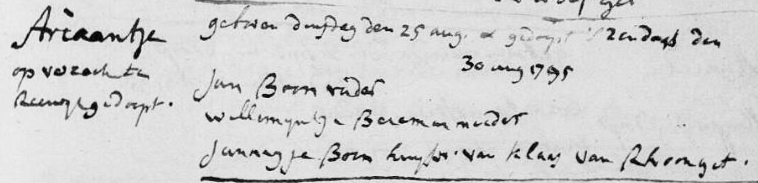 Ariaantje
op verzoek te
Reeuwyk gedoopt.
geboren dinsdag den 25 aug. & gedoopt zondags den
30 aug 1795
Jan Boon vader
Willemyntje Bereman moeder
Jannigje Boon huysvr. van Klaas van